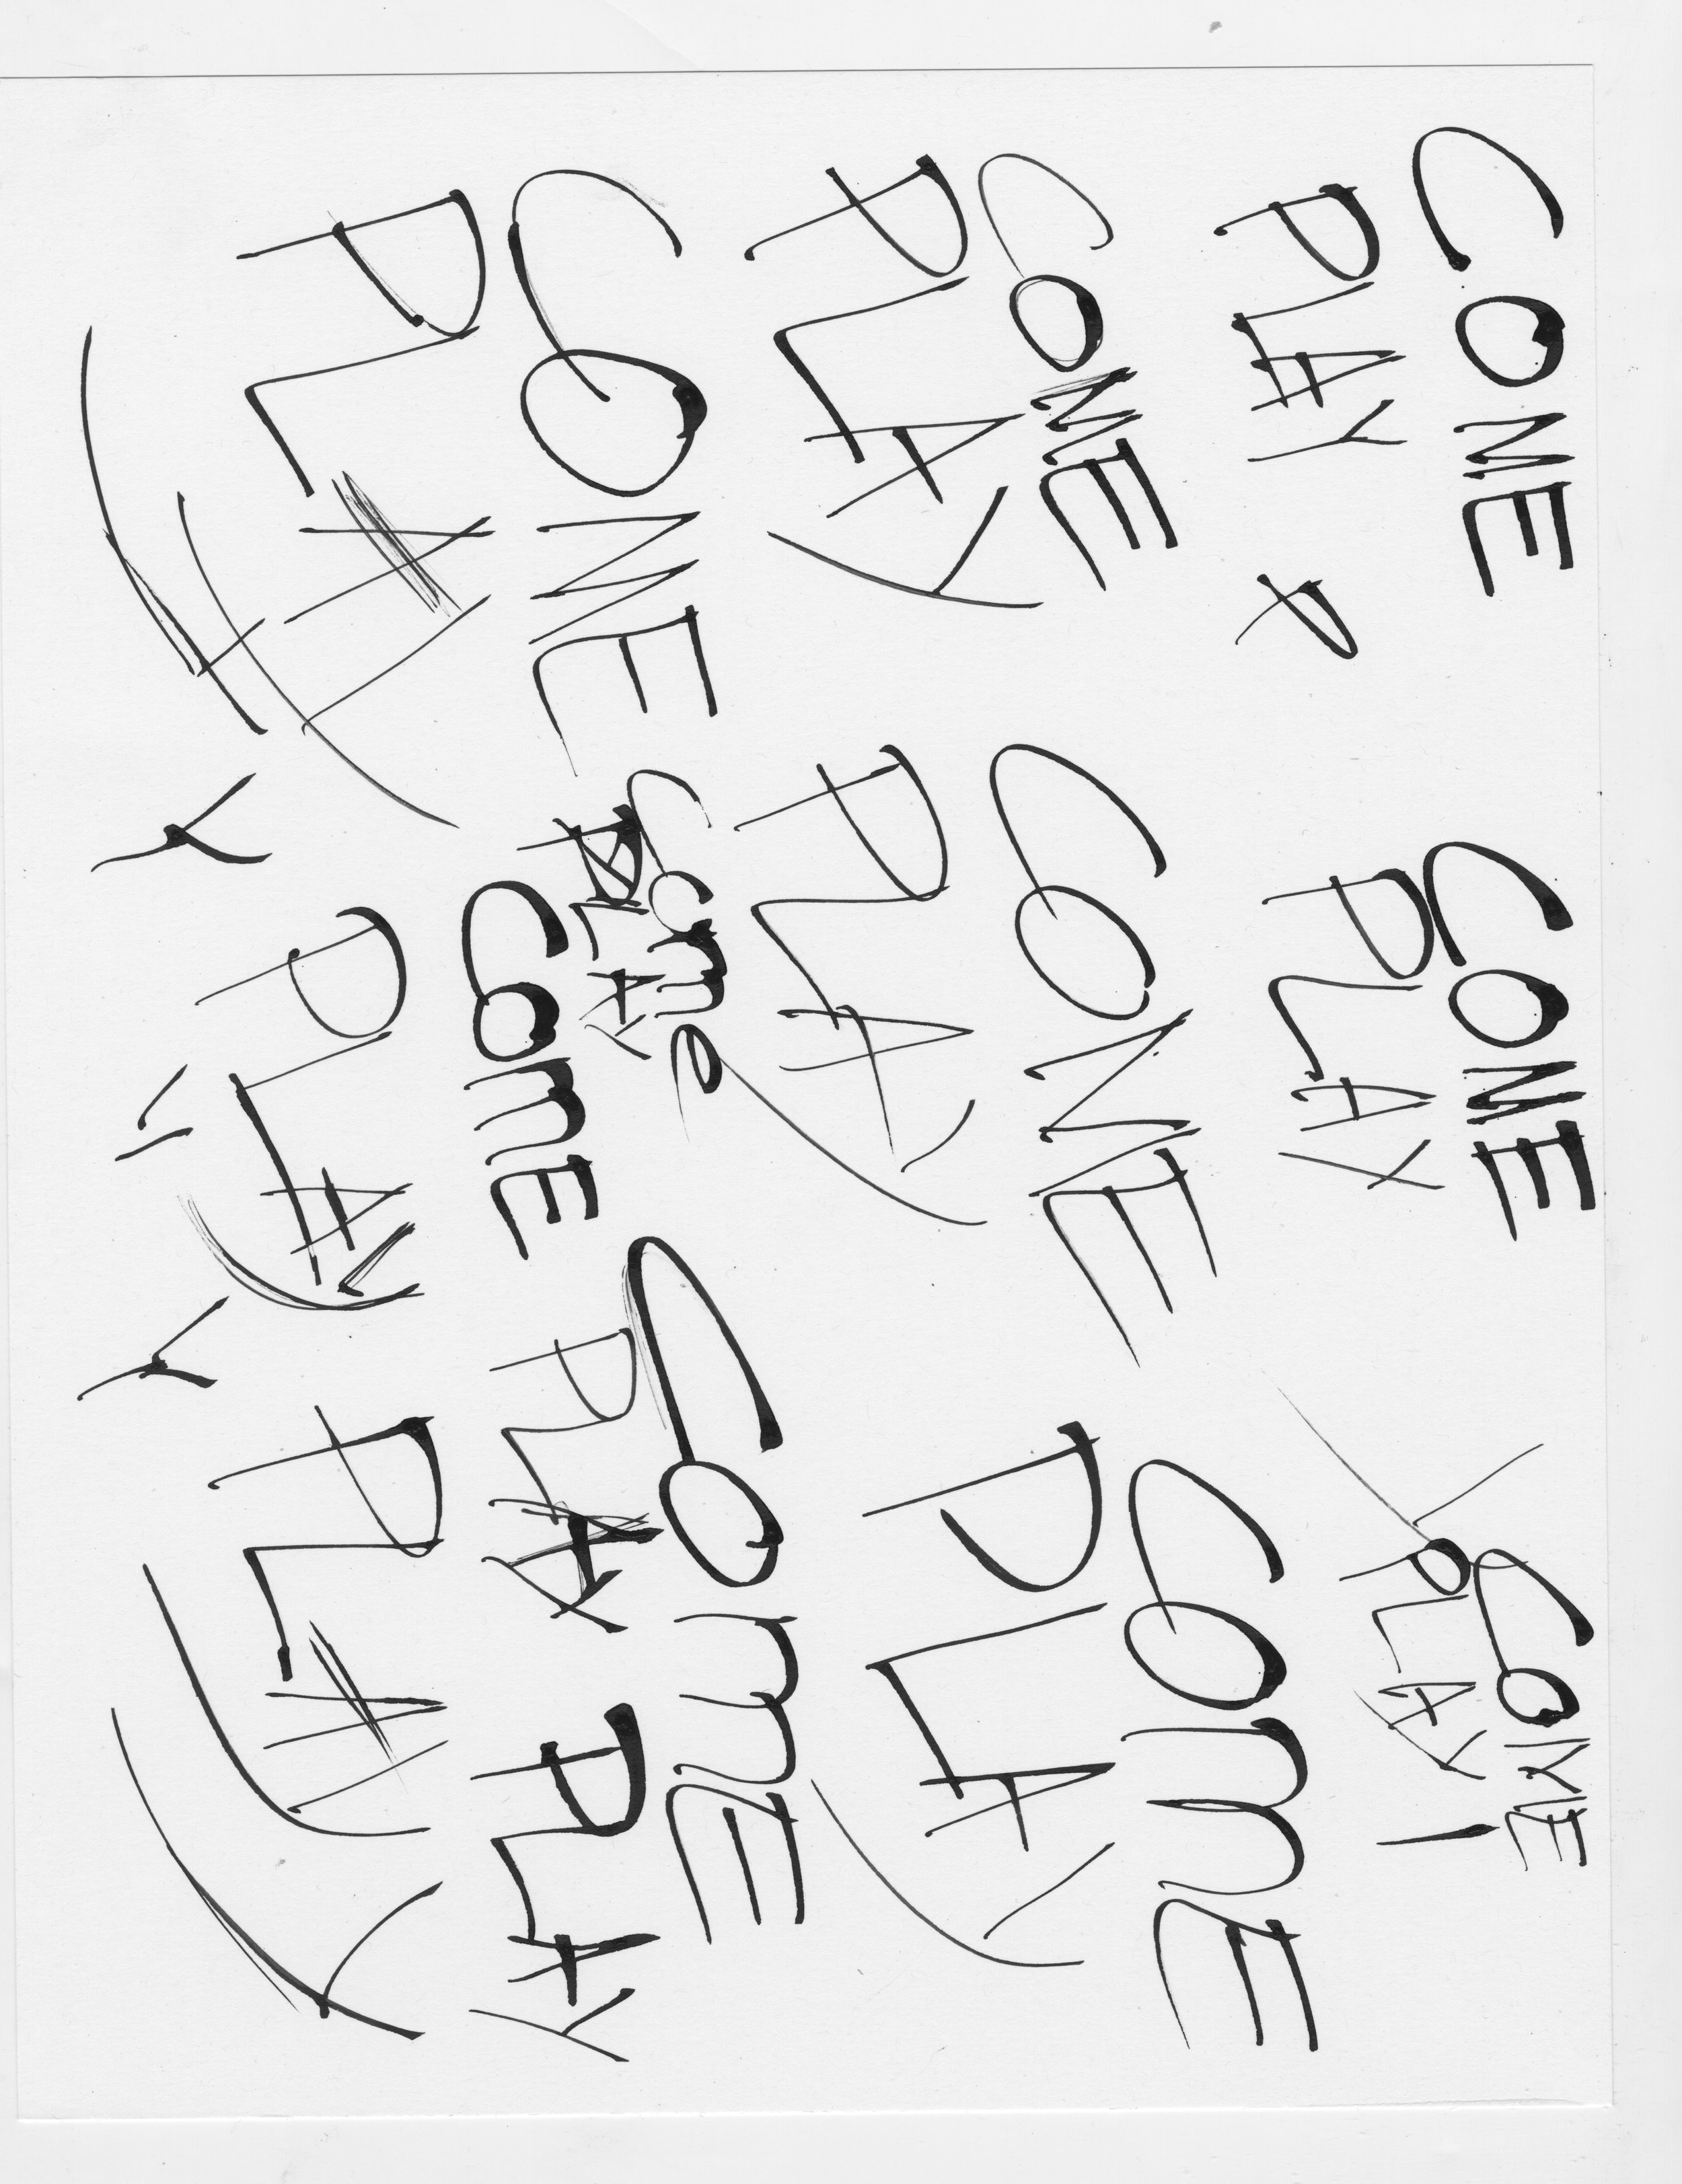 COME
PLAY
P
COME
PLAY
COME
Y PLAY!
COME
PLAY
COME
PLAY
COmE
PLAY
COME
PLAY
Y
Come
PLAY
COmE
PLAY
Y
Y
COmE
PLAY
PLAY
PLAY
Y